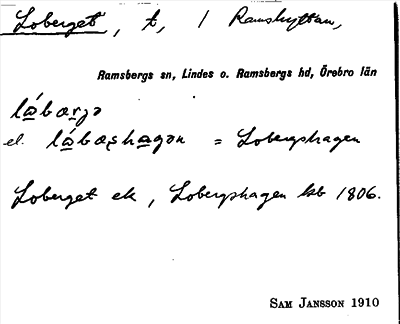 Loberget, t, / Ramshyttan,
Ramsbergs sn, Lindes o. Ramsbergs hd, Örebro län
lá̱bæ̱rjə
el. lá̱bæʂha̱gən = Lobergshagen
Loberget ek, Lobergshagen ksb 1806.
SAM JANSSON 1910